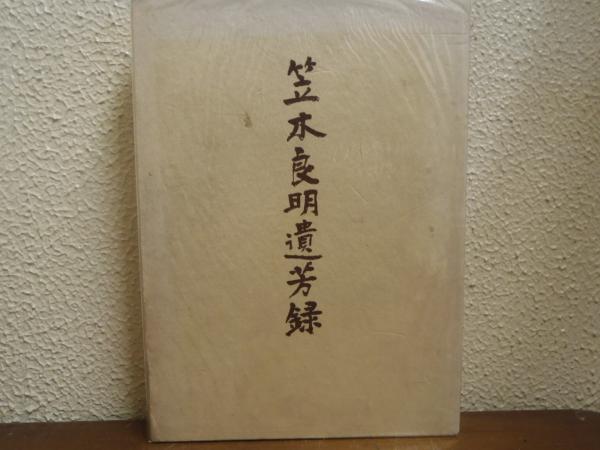 笠木良明遺芳録